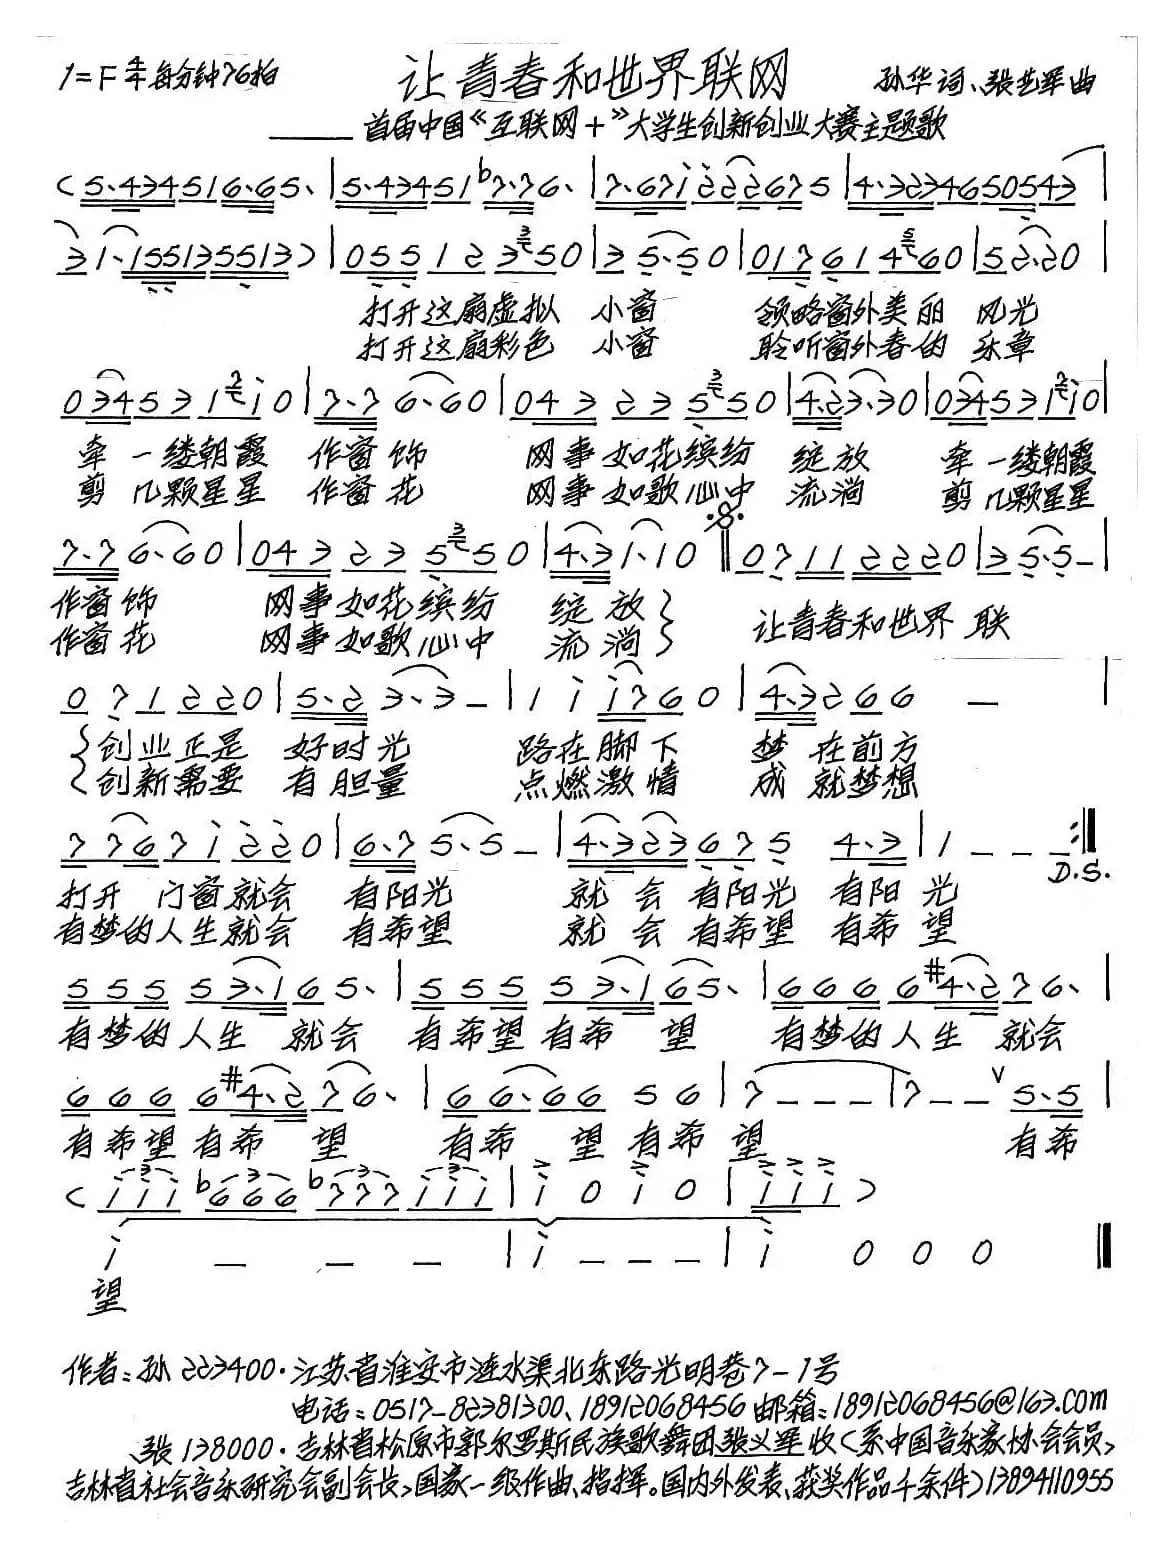 1=F 4/4 每分钟76拍 让青春和世界联网 孙华词、张艺军曲
——首届中国《互联网+》大学生创新创业大赛主题歌
(5.434516.65. | 5.43451 b7.76. | 7.671 222675 | 4.3234650543 |
31.155135513) | 055 12 3 50 | 3 5.50 | 017 61 4 60 | 52.20 |
打开这扇虚拟 小窗 领略窗外美丽 风光
打开这扇彩色 小窗 聆听窗外春的 乐章
03453 1 i0 | 7.7 6.60 | 043 23 5 50 | 4.23.30 | 034531 i0 |
牵一缕朝霞 作窗饰 网事如花缤纷 绽放 牵一缕朝霞
剪几颗星星 作窗花 网事如歌心中 流淌 剪几颗星星
7.7 6.60 | 043 23 5 50 | 4.31.10 || 0711 2220 | 3 5.5- |
作窗饰 网事如花缤纷 绽放 让青春和世界 联
作窗花 网事如歌心中 流淌
0 71 220 | 5.2 3.3 - | 1 i i760 | 4.3266 - |
创业正是 好时光 路在脚下 梦在前方
创新需要 有胆量 点燃激情 成就梦想
7767i 220 | 6.7 5.5 - | 4.323 675 4.3 | 1 - - - :||
D.S.
打开 门窗就会 有阳光 就会有阳光 有阳光
有梦的人生就会 有希望 就会有希望 有希望
555 53.165. | 555 53.165. | 666 6#4.276. |
有梦的人生 就会 有希望有希 望 有梦的人生 就会
666 6#4.2 76. | 66.66 56 | 7 - - - | 7 - - 5.5 |
有希望有希 望 有希 望有希望 有希
(iii b666 b777 iii | i 0 i 0 | iii)
i - - - | i - - - | i 0 0 0 ||
望
作者:孙 223400·江苏省淮安市涟水渠北东路光明巷7-1号
电话:0517-82381300、18912068456 邮箱:18912068456@163.com
张 138000·吉林省松原市郭尔罗斯民族歌舞团张义军收(系中国音乐家协会会员,
吉林省社会音乐研究会副会长,国家一级作曲、指挥。国内外发表、获奖作品千余件)13894110955